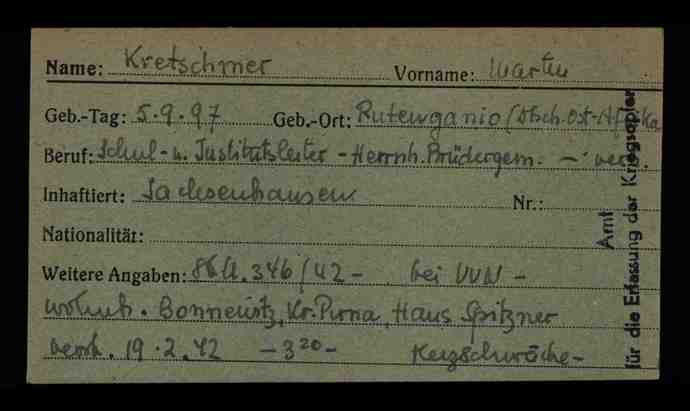 Name: Kretschmer Vorname: Martin
Geb.-Tag: 5.9.97 Geb.-Ort: Rutenganio (Dtsch. Ost-Afrika
Beruf: Schul- u. Institutsleiter - Herrnh. Brüdergem. - verh.
Inhaftiert: Sachsenhausen Nr.:
Nationalität:
Weitere Angaben: 346/42 - bei VVN -
wohnh. Kr. Pirna, Haus Spitzner
verst. 19.2.42 - 3 20 - Herzschwäche -
Amt
für die Erfassung der Kriegsopfer